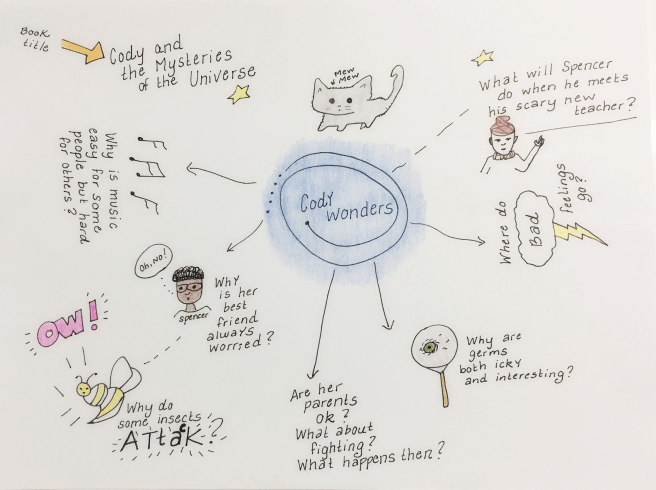 Book
title
Cody and
the Mysteries
of the Universe
Mew
Mew
What will Spencer
do when he meets
his scary new
teacher?
Why is music
easy for some
people but hard
for others?
Cody
Wonders
Where do
Bad
feelings
go?
Oh, No!
spencer
Why
is her
best
friend
always
worried?
OW!
Why do
some insects
ATtaCK?
Are her
parents
ok?
What about
fighting?
What happens then?
Why are
germs
both icky
and interesting?